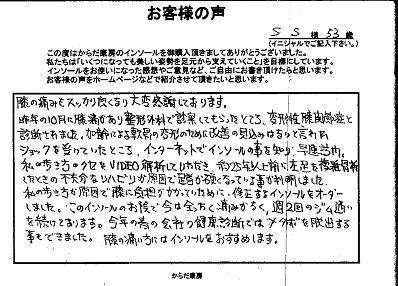 お客様の声
S S 様 53 歳
(イニシャルでご記入下さい。)
この度はからだ廣房のインソールを御購入頂きましてありがとうございました。
私たちは「いくつになっても美しい姿勢を足元から支えていくこと」を目標にしています。
インソールをお使いになった感想やご意見など、ご自由にお書き頂けたらと思います。
お客様の声をホームページなどで紹介させて頂きたいと思います。
膝の痛みもスッカリ良くなり大変感謝しております。
昨年の10月に膝痛があり整形外科で診察してもらったところ、変形性膝関節症と
診断されました。加齢による軟骨の変形のために改善の見込みはないと言われ
ショックを受けていたところ、インターネットでインソールの事を知り、早速訪問。
私の歩き方のクセをVIDEO解析していただき、約25年以上前に左足を複雑骨折
したときの不十分なリハビリが原因で筋力が弱くなっている事が判明しました。
私の歩き方が原因で膝に負担がかかっていたために、修正するインソールをオーダー
しました。このインソールのお陰で今は全ったく痛みがなく、週2回のジム通い
を続けております。今年の春の会社の健康診断ではメタボを脱出する
事もできました。膝の痛い方にはインソールをおすすめします。
からだ廣房